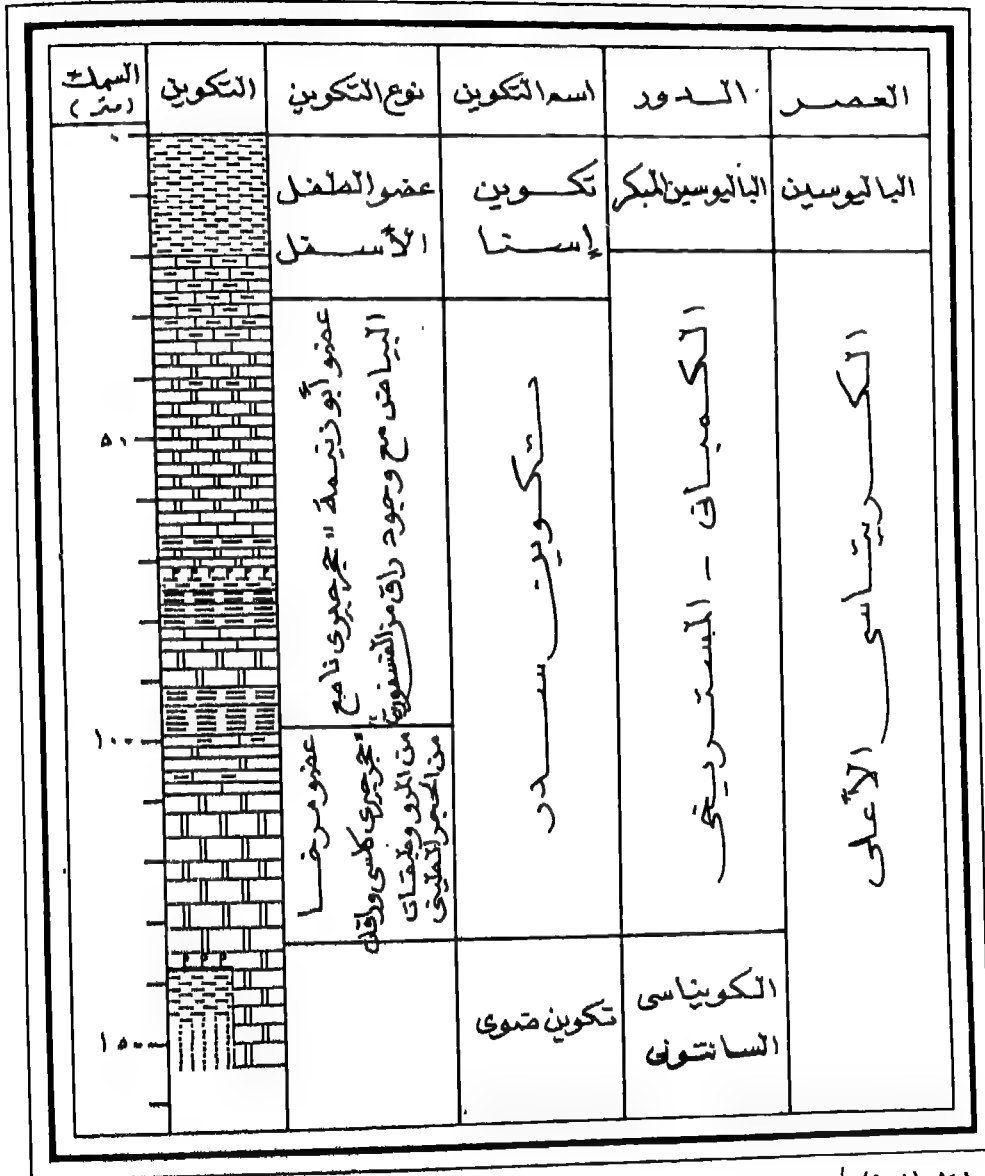 العصر
الدور
اسم التكوين
نوع التكوين
التكوين
السمك
(متر)
الباليوسين
الباليوسين المبكر
تكوين
إسنا
عضو الطفل
الأسفل
الكريتاسى الأعلى
الكمبانى - المسترىخى
تكوين سدر
عضو أبو زنيمة "حجر جيرى ناصع
البياض مع وجود راق من
عضو مرخا
"حجر جيرى كلسى وراقات
من المرو وطبقات
من الحجر الطينى
الكونياسى
السانتونى
تكوين ضوى
٠
٥٠
١٠٠
١٥٠